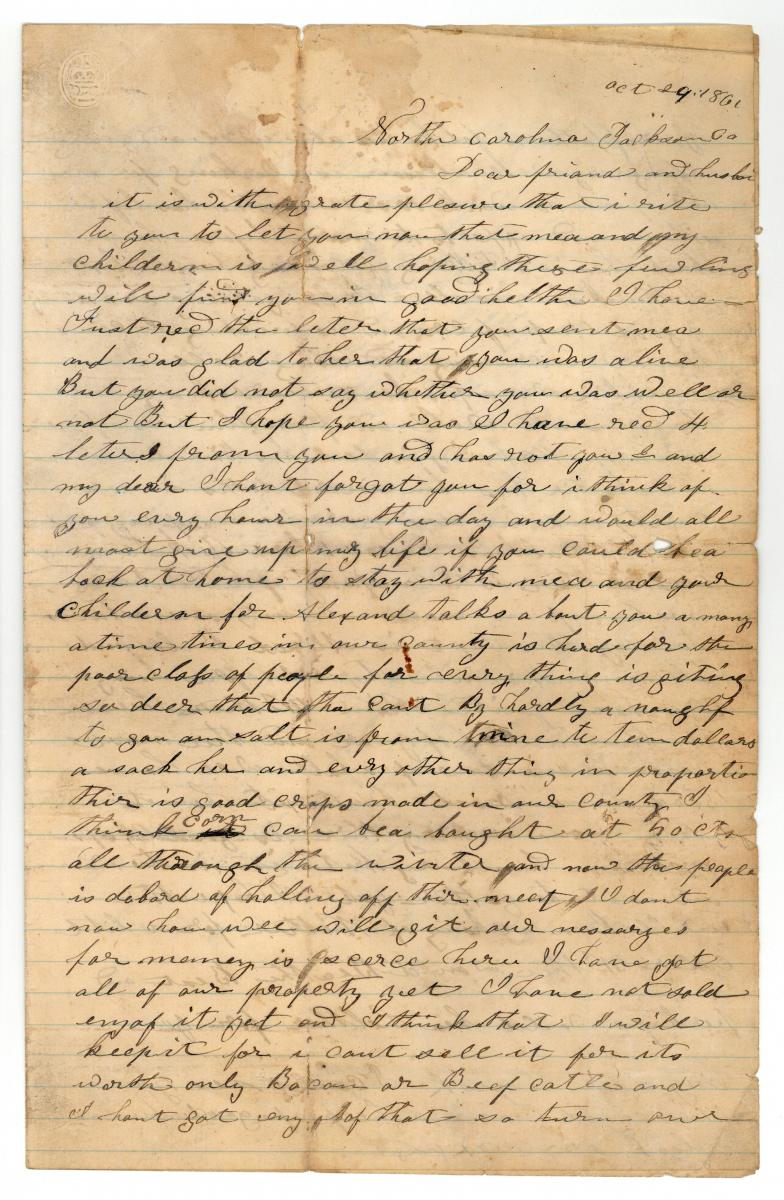 oct 29. 1861
North carolina Jackson Co
Dear friand and husban
it is with grate plesure that i rite
to you to let you now that mea and my
childern is well hoping these few lins
will find you in good helth I have
Just recd the leter that you sent mea
and was glad to her that you was alive
But you did not say whether you was well or
not But I hope you was I have recd 4
leters from you and has rot you 2 and
my dear I hant forgot you for i think of
you every hour in the day and would all
most give up my life if you could bea
back at home to stay with mea and your
childern for Alexand talks a bout you a many
a time times in our county is hard for the
poor class of people for every thing is giting
so deer that tha cant By hardly a nough
to you am salt is from nine to tenn dollars
a sack her and evry other thing in proportio
thir is good crops made in our county I
think Corn can bea bought at 50 cts
all thorough the winter and now the people
is dobard of halling off thir meet I dont
now how wee will git our nessaryes
for money is scerce here I have got
all of our property yet I have not sold
eny of it yet and I think that I will
keep it for i cant sell it for its
worth only Bacon or Beef catle and
I hant got eny of that so turn over